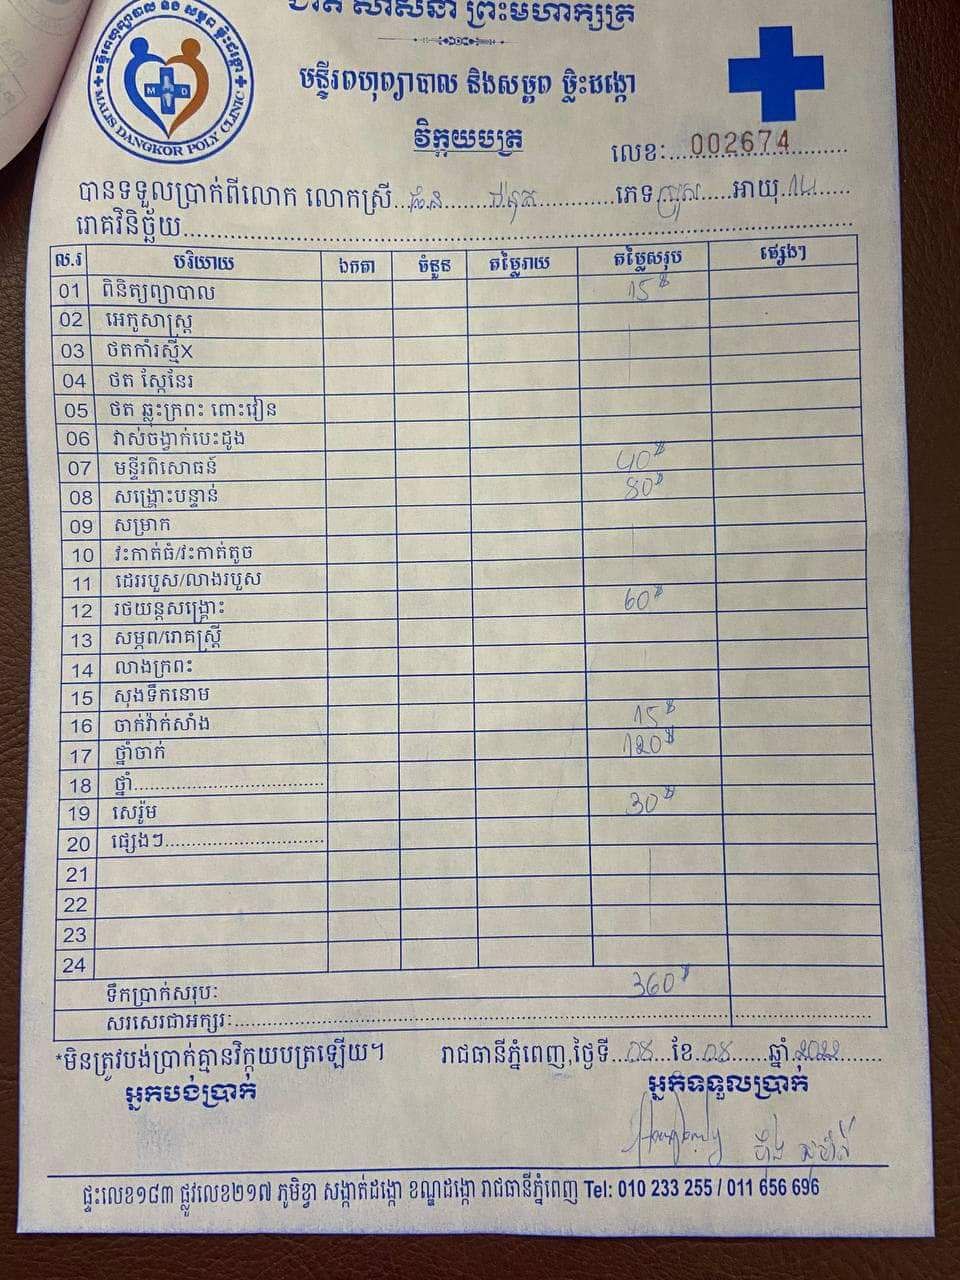 ជាតិ សាសនា ព្រះមហាក្សត្រ
មន្ទីរពហុព្យាបាល និងសម្ភព ម្លិះដង្កោ
MALIS DANGKOR POLY CLINIC
M D
វិក្កយបត្រ
លេខៈ 002674
បានទទួលប្រាក់ពីលោក លោកស្រី ភេទ ប្រុស អាយុ
រោគវិនិច្ឆ័យ
ល.រ បរិយាយ ឯកតា ចំនួន តម្លៃរាយ តម្លៃសរុប ផ្សេងៗ
01 ពិនិត្យព្យាបាល 15$
02 អេកូសាស្ត្រ
03 ថតកាំរស្មីX
04 ថត ស្កែនែរ
05 ថត ឆ្លុះក្រពះ ពោះវៀន
06 វាស់ចង្វាក់បេះដូង
07 មន្ទីរពិសោធន៍ 40$
08 សង្គ្រោះបន្ទាន់ 80$
09 សម្រាក
10 វះកាត់ធំ/វះកាត់តូច
11 ដេររបួស/លាងរបួស
12 រថយន្តសង្គ្រោះ 60$
13 សម្ភព/រោគស្ត្រី
14 លាងក្រពះ
15 សុងទឹកនោម
16 ចាក់វ៉ាក់សាំង 15$
17 ថ្នាំចាក់ 120$
18 ថ្នាំ
19 សេរ៉ូម 30$
20 ផ្សេងៗ
21
22
23
24
ទឹកប្រាក់សរុបៈ 360$
សរសេរជាអក្សរៈ
*មិនត្រូវបង់ប្រាក់គ្មានវិក្កយបត្រឡើយ។ រាជធានីភ្នំពេញ,ថ្ងៃទី 08 ខែ 08 ឆ្នាំ 2022
អ្នកបង់ប្រាក់ អ្នកទទួលប្រាក់
ផ្ទះលេខ១៨៣ ផ្លូវលេខ២១៧ ភូមិខ្វា សង្កាត់ដង្កោ ខណ្ឌដង្កោ រាជធានីភ្នំពេញ Tel: 010 233 255 / 011 656 696